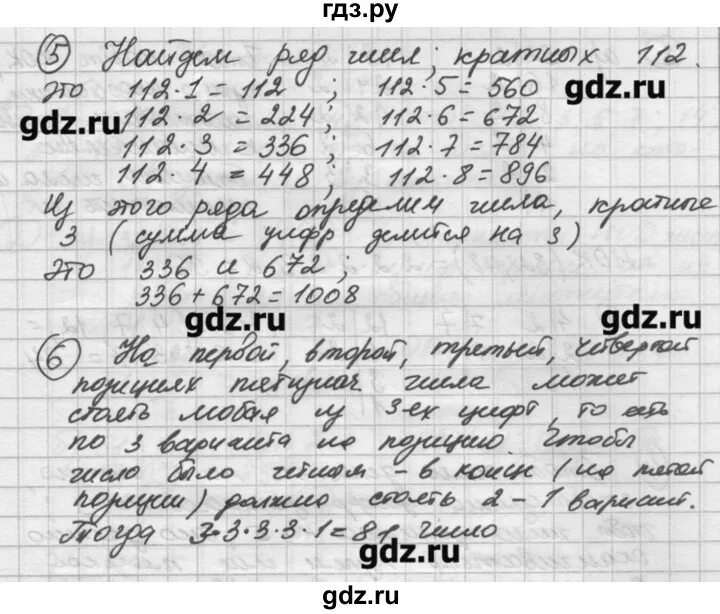 гдз.ру
5 Найдем ряд чисел, кратных 112.
это 112·1 = 112 ; 112·5 = 560
gdz.ru
112·2 = 224 ; 112·6 = 672
gdz.ru
112·3 = 336 ; 112·7 = 784
112·4 = 448 , 112·8 = 896
Из этого ряда определим числа, кратные
3 (сумма цифр делится на 3)
это 336 и 672 ;
336 + 672 = 1008
gdz.ru
gdz.ru
6 На первой, второй, третьей, четвертой
позициях пятизнач числа может
стоять любая из 3-ех цифр, то есть
по 3 варианта на позицию. Чтобы
число было четным – в конце (на пятой
позиции) должно стоять 2 – 1 вариант.
Тогда 3·3·3·3·1 = 81 число
gdz.ru
gdz.ru